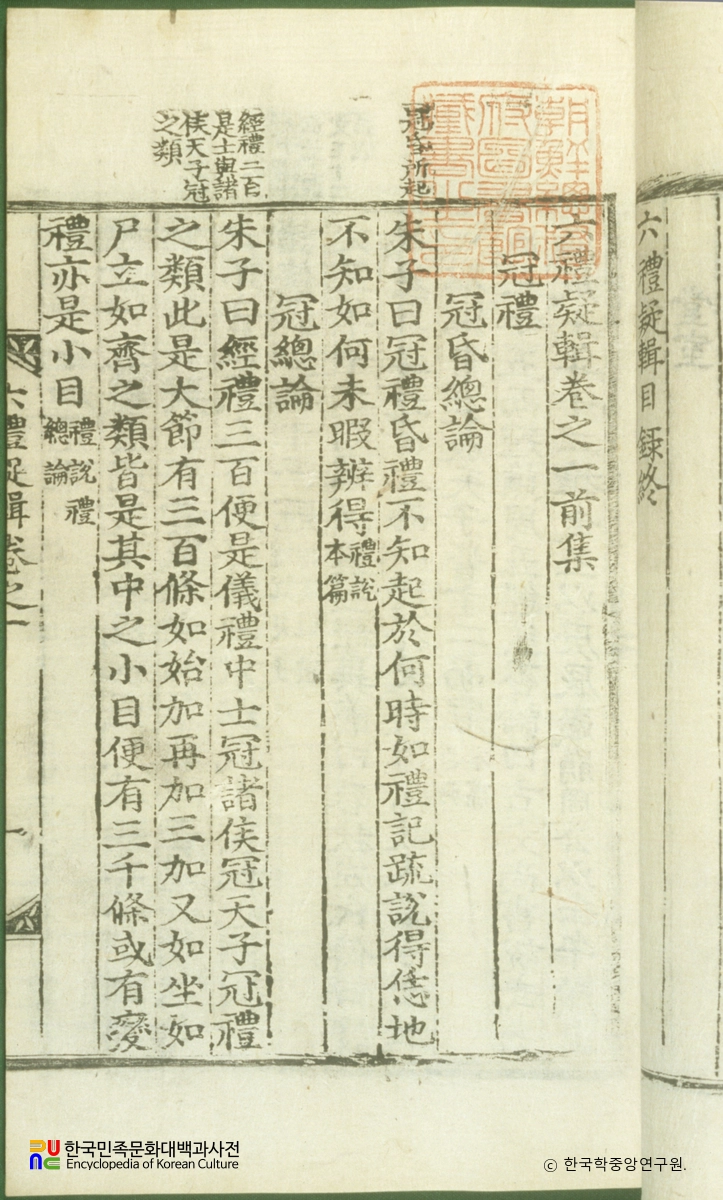 六禮疑輯目錄終
朝鮮總督
府圖書館
藏書之印
六禮疑輯卷之一前集
冠禮
冠昏總論
冠昏所起
朱子曰冠禮昏禮不知起於何時如禮記疏說得恁地
不知如何未暇辨得禮說本篇
冠總論
經禮三百
是士與諸
侯天子冠
之類
朱子曰經禮三百便是儀禮中士冠諸侯冠天子冠禮
之類此是大節有三百條如始加再加三加又如坐如
尸立如齊之類皆是其中之小目便有三千條或有變
禮亦是小目禮說禮總論
六禮疑輯卷之一
一
한국민족문화대백과사전
Encyclopedia of Korean Culture
ⓒ 한국학중앙연구원.